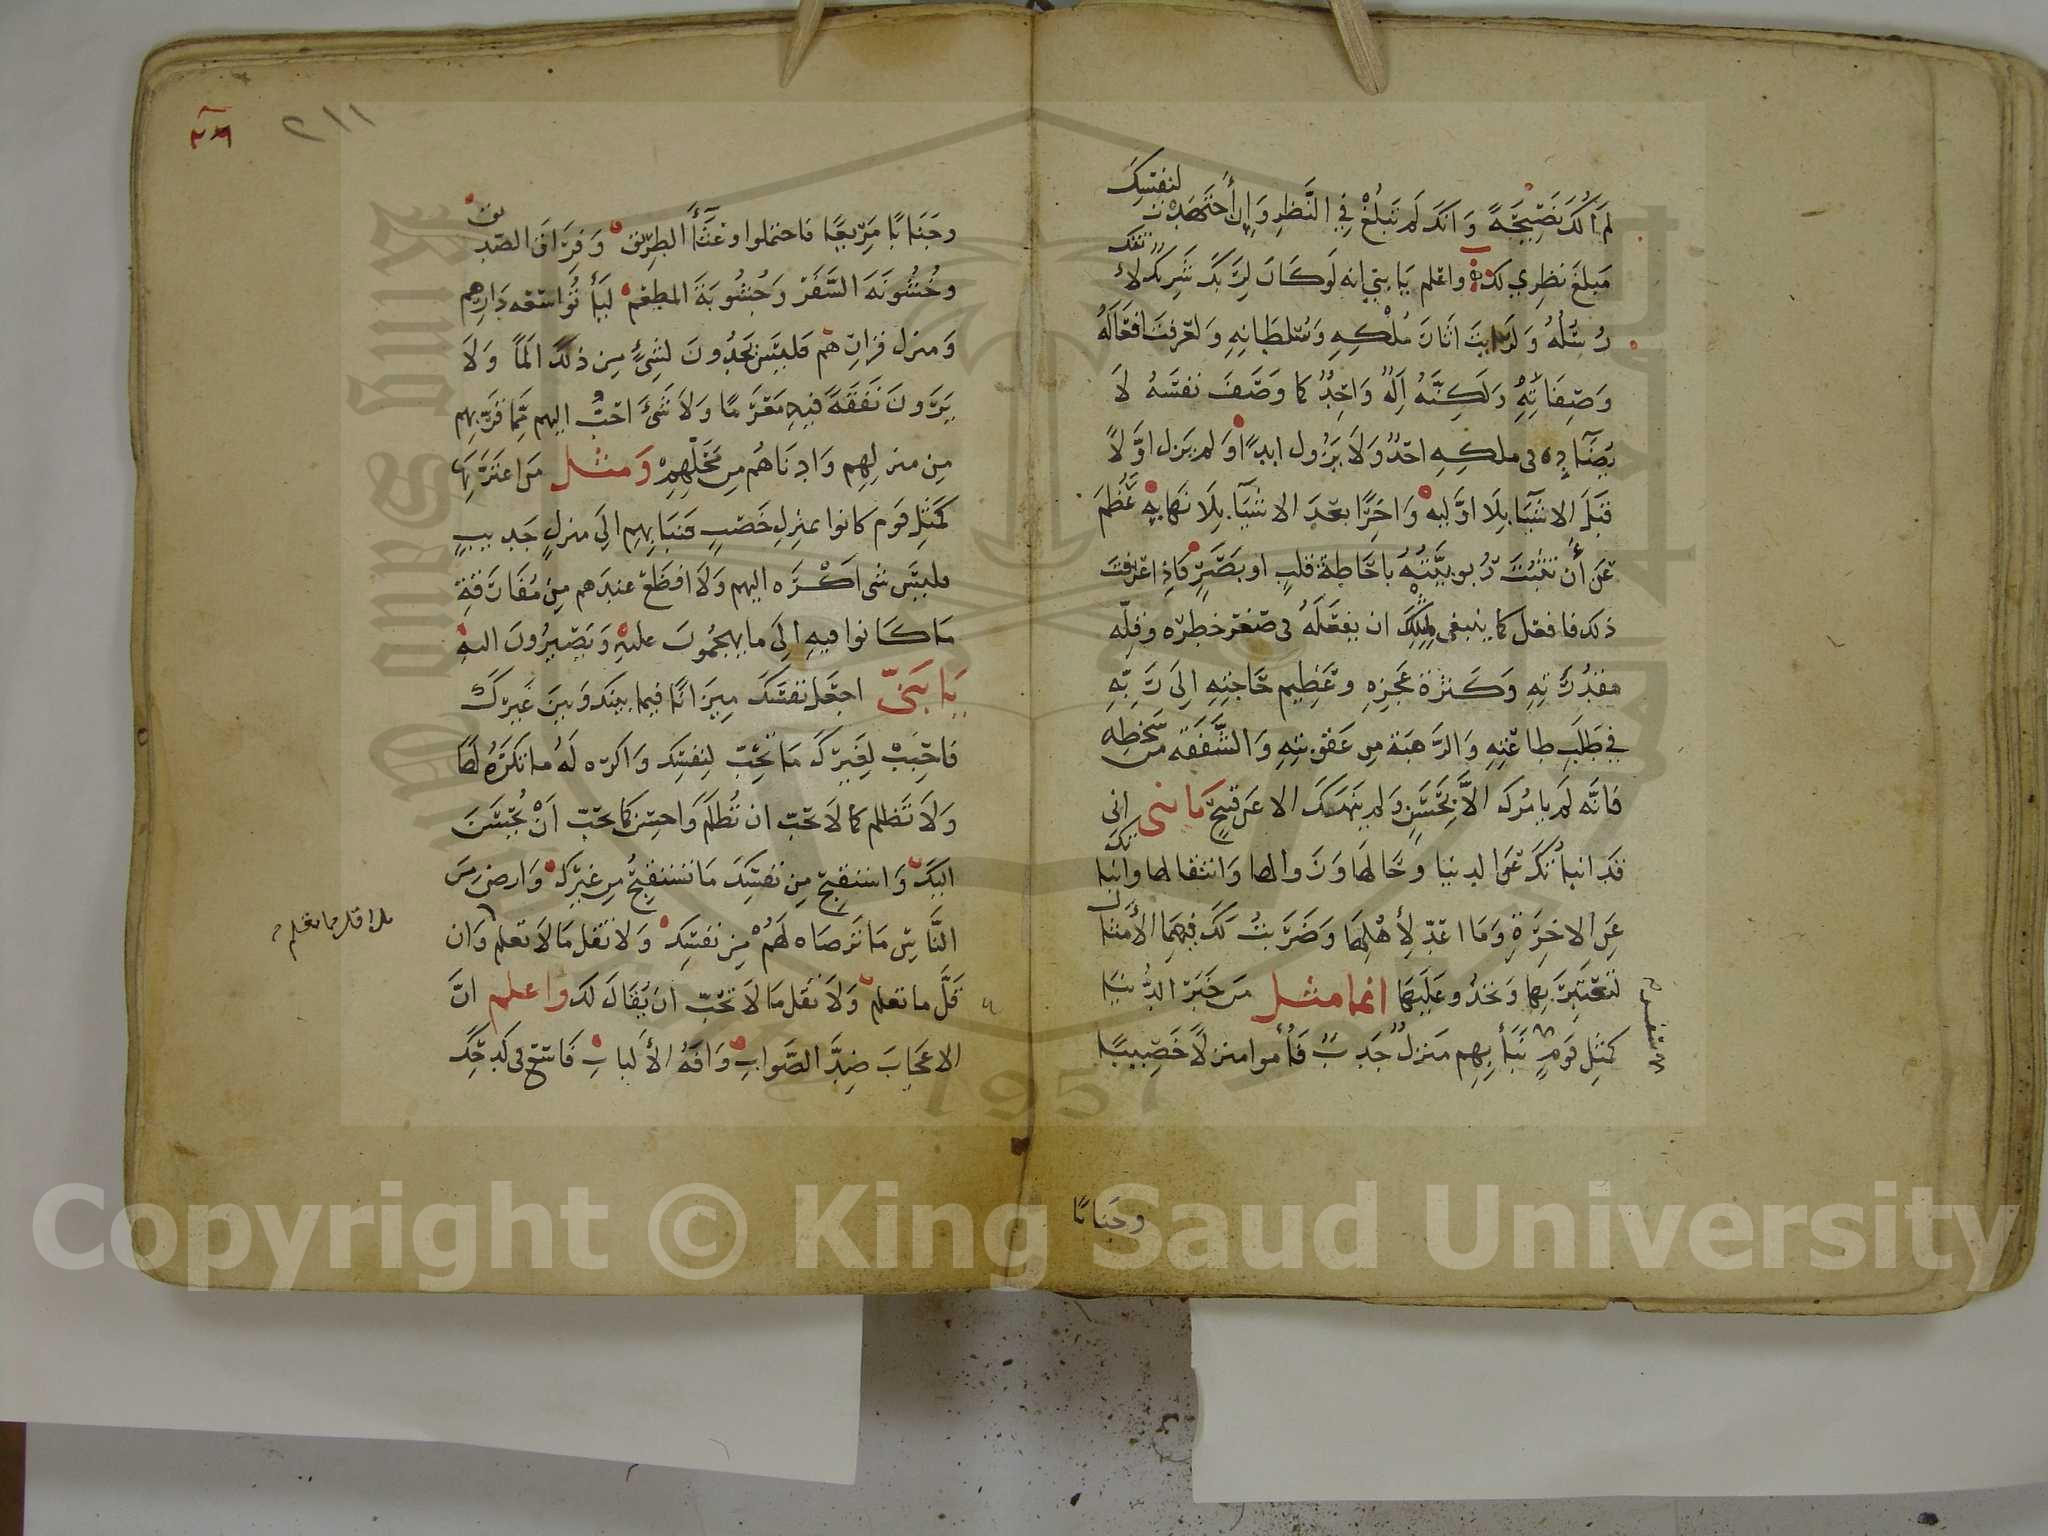 لَمْ آلُكَ نَصِيحَةً وَانَكَ لَمْ تَبْلُغْ فِي النَّظَرِ وَاِنْ أَجْتَهَدْتَ لنفسِكَ
مَبلغَ نظرِي لكَ واعلم يَا بني انه لَو كَانَ لِرَبِّكَ شَرِيكٌ لأتتك
رُسُلُهُ وَلَرَايتَ اثَارَ مُلْكِهِ وَسُلطَانِهِ وَلعَرفتَ افعَالَهُ
وَصِفَاتِهِ وَلَكِنَّهُ اِلهٌ وَاحِدٌ كما وَصَفَ نفسَهُ لاَ
يُضَآدُّه في ملكِهِ احَدٌ وَلاَ يَزُول ابدًا وَلم يَزل اوَّلاً
قبَلَ الاشيَآ بِلَا اوَّليه وَاخِرًا بعدَ الاشيَآ بِلَا نهَايهِ عَظُمَ
عَن أن تثبُتَ رُبوبيَّتُهُ باحَاطِةِ قلبٍ او بَصَرٍ فَاذِا عَرفتَ
ذلكَ فافعَل كما ينبغى لِمِثلِكَ ان يفعَلَهُ في صغر خطره وَقِلّه
مقدُرَتِهِ وَكَثرَة عَجزِهِ وَعَظِيم حَاجتِهِ اِلىَ رَبّهِ
فِي طَلَبِ طاعَتِهِ وَالرَّهبَة مِن عَقوبتِهِ وَالشَّفَقَه مِن سَخطِه
فَانَّه لَم يَامُرك الاَّ بِحَسَنٍ وَلم يَنهَكَ الا عَن قبيحٍ يَا بُني اني
قدَ انبأتُكَ عَن الدنيا وَحَالهَا وَزَوالها وَانتقالها وَانباتك
عَن الاخِرَةِ وَمَا اعدّ لِأهْلِهَا وَضَرَبتُ لَكَ فِيهمَا الأمثال
لتعتَبِرَ بِهَا وَتحذُو عَلَيَهَا انما مثل مَن خَبَرَ الدُّنيَا
كمَثلِ قَومٍ نَبَأ بِهِم مَنزلٌ جَدبٌ فَأموا منزلاً خَصِيبًا
وَجَنَابًا
وَجَنَابًا مَرِيعًا فاحتملوا وَعثَآءَ الطرِيق وَفِرَاق الصّديق
وخُشُونَةَ السَّفَر وَجُشُوبَةَ المطعَم ليَأتوُا سَعَه دَارِهِم
وَمنزل قرارِهم فليسَ يجدُونَ لشيءٍ مِن ذلكَ المًا وَلاَ
يَرَونَ نَفَقَةً فيهِ مَغرَمًا وَلاَ شَيَ احَبُّ اليهم مِمَّا قرَّبهم
مِن منزلِهم وَادنَاهُم مِن مَحَلّهِم وَمثل مَن اغتَرَّ بِهَا
كَمَثلِ قوم كانوا بمنزِلِ خَصيبٍ فنبَا بِهِم اِلىَ منزلٍ جَديبٍ
فليسَ شى اكْرَه اليهم وَلاَ افظَع عندَهم مِن مُفَارَقةِ
مَا كَانوا فيهِ الِى مَا يهجُمُونَ عليهِ وَيَصِيرُونَ اليهِ
يَا بَنىّ اجعَل نفسَكَ مِيزَانًا فيما بينكَ وَبينَ غَيرِكَ
فَاحبِبْ لِغَيرِكَ مَا تُحِبّ لِنفسِكَ وَاكره لَهُ مَا تكرَهُ لهَا
وَلاَ تَظلم كما لاَ تحبّ ان تُظلَمَ وَاحسِن كما تحبّ اَنْ يُحسَنَ
اليكَ وَاستقبِح مِن نفسِكَ مَا تستقبحُ مِن غيركَ وَارضَ مِنَ
النَّاسِ مَا تَرضَاه لَهُمْ مِن نفسِكَ وَلاَ تقل مَا لاَ تعلَم وَان
قَلَّ ما تعلَم وَلاَ تقل مَا لاَ تُحبّ ان يُقَالَ لكَ واعلم انَّ
الاعجَابَ ضِدَّ الصَّوابِ وَافَهُ الأَلبابِ فَاسعَ في كَدحِكَ